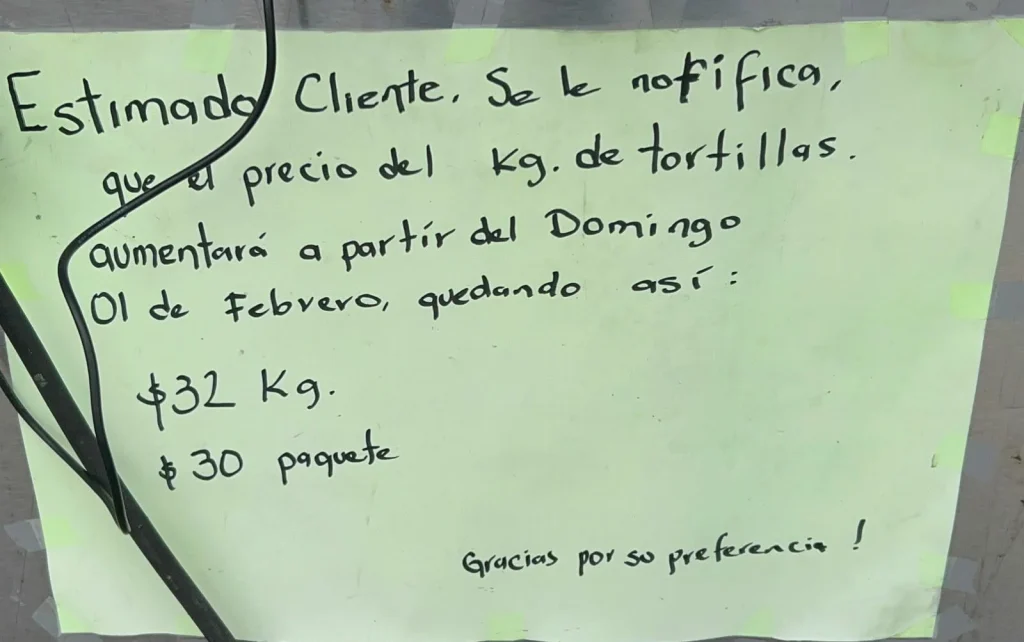 Estimado Cliente. Se le notifica,
que el precio del Kg. de tortillas.
aumentará a partír del Domingo
01 de Febrero, quedando así:
$32 Kg.
$30 paquete
Gracias por su preferencia!